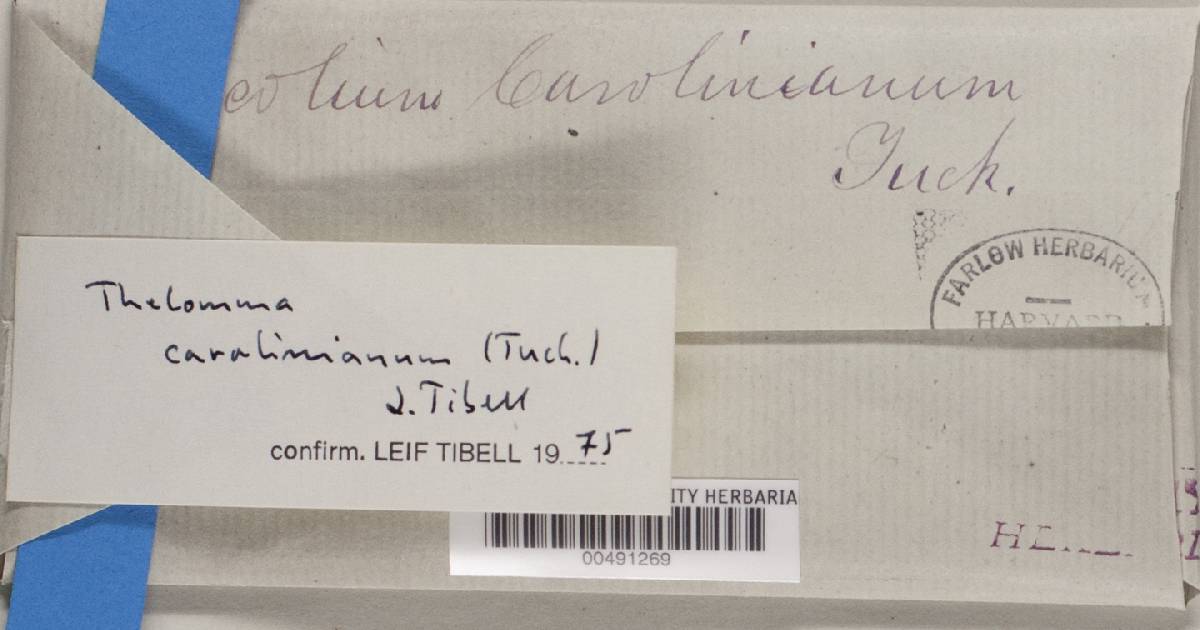 colium Carolinianum
Tuck.
FARLOW HERBARIUM
HARVARD
Thelomma
carolinianum (Tuck.)
L. Tibell
confirm. LEIF TIBELL 19 75
ITY HERBARIA
00491269